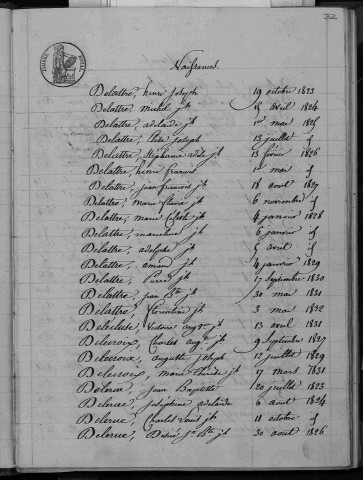 32
TIMBRE ROYAL
Naissances
Delattre, henri joseph 19 octobre 1823
Delattre, michel jh 15 avril 1824
Delattre, adelaïde jh 1er mai 1825
Delattre, Elise joseph 13 juillet id
Delattre, Stéphanie adèle jh 13 février 1826
Delattre, henri françois 1er mai id
Delattre, jean françois jh 18 août 1827
Delattre, marie jh 6 novembre id
Delattre, marie jh 4 janvier 1828
Delattre, jh 6 janvier id
Delattre, adolphe jh 5 avril id
Delattre, amand jh 4 janvier 1829
Delattre, Pierre jh 17 Septembre 1830
Delattre, jean Bte jh 30 mai 1831
Delattre, Florentine jh 3 mai 1832
Delécluse, Victoire Augne jh 13 avril 1831
Delecroix, Charles Augte jh 9 Septembre 1827
Delecroix, auguste joseph 12 juillet 1829
Delecroix, marie jh 17 mars 1831
Delerue, jean Baptiste 20 juillet 1823
Delerue, joséphine adelaïde 6 août 1824
Delerue, Charles Louis jh 18 octobre id
Delerue, Désiré jn Bte jh 30 août 1826